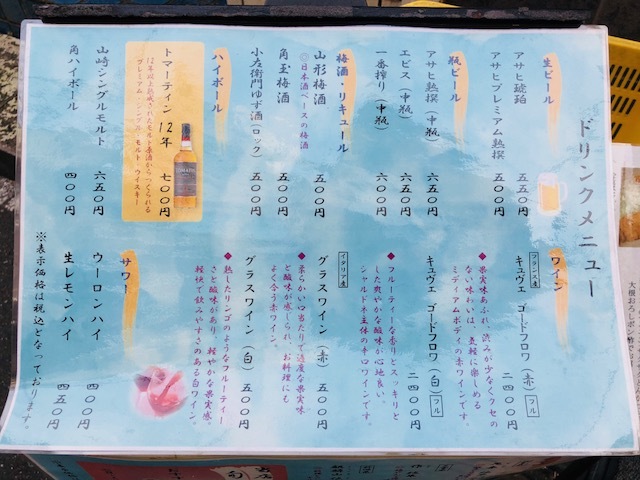 ドリンクメニュー
生ビール
アサヒ琥珀 五五〇円
アサヒプレミアム熟撰 五〇〇円
瓶ビール
アサヒ熟撰（中瓶） 六五〇円
エビス（中瓶） 六五〇円
一番搾り（中瓶） 六〇〇円
梅酒・リキュール
山形梅酒 五〇〇円
◎日本酒ベースの梅酒
角玉梅酒 五〇〇円
小左衛門ゆず酒（ロック） 五〇〇円
ハイボール
トマーティン 12年 七〇〇円
12年以上熟成されたモルト原酒からつくられる
プレミアム シングル モルト ウイスキー
山崎シングルモルト 六五〇円
角ハイボール 四〇〇円
ワイン
フランス産
キュヴェ ゴードフロワ（赤）フル 二四〇〇円
◆果実味あふれ、渋みが少なくクセの
ない味わいは、気軽に楽しめる
ミディアムボディの赤ワインです。
キュヴェ ゴードフロワ（白）フル 二四〇〇円
◆フルーティーな香りとスッキリと
した爽やかな酸味が心地良い。
シャルドネ主体の辛口ワインです。
イタリア産
グラスワイン（赤） 五〇〇円
◆柔らかい口当たりで適度な果実味
と酸味が感じられ、お料理にも
よく合う赤ワイン。
グラスワイン（白） 五〇〇円
◆熟したリンゴのようなフルーティー
さと酸味があり 軽やかな果実感、
軽快で飲みやすさのある白ワイン。
サワー
ウーロンハイ 四〇〇円
生レモンハイ 四五〇円
※表示価格は税込となっております。
大根おろしポン酢で